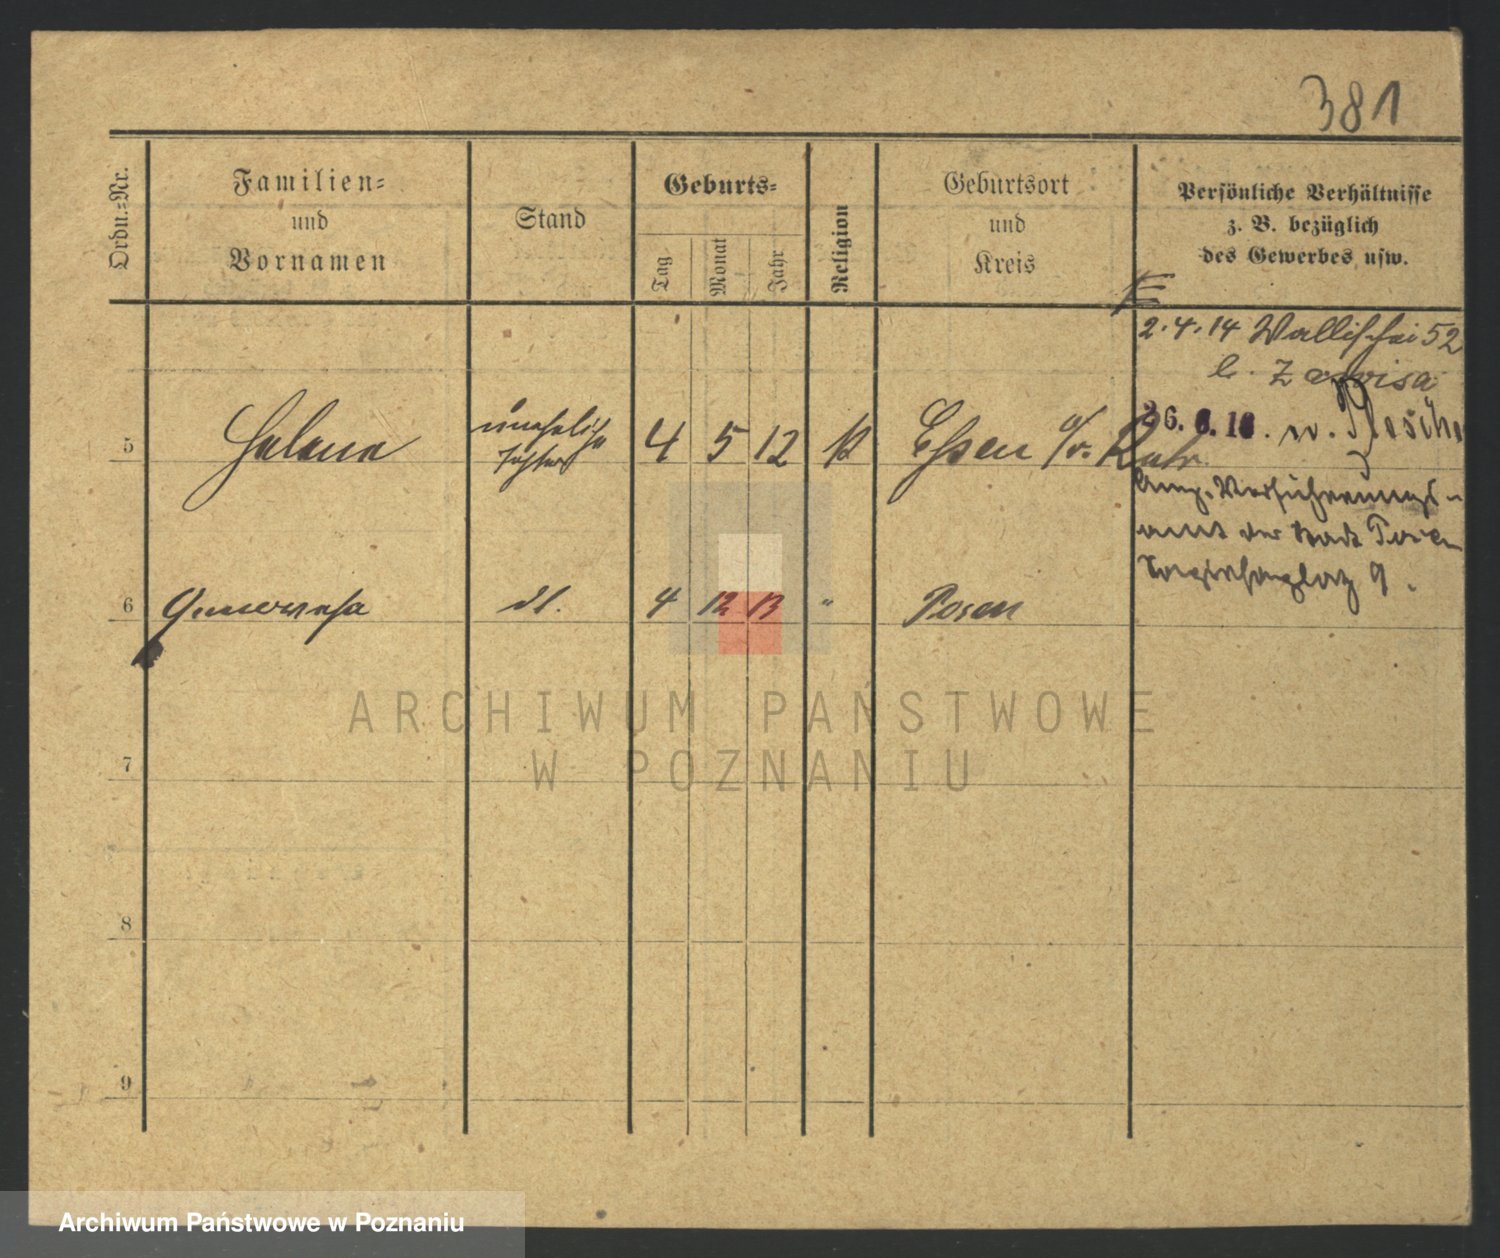 381
Ordn.-Nr.
Familien-
und
Vornamen
Stand
Geburts-
Tag
Monat
Jahr
Religion
Geburtsort
und
Kreis
Persönliche Verhältnisse
z. B. bezüglich
des Gewerbes usw.
2.4.14 Wallischei 52
b. Zawisa
5 Helena uneheliche 4 5 12 K Essen a/v. Ruhr
Tochter
26.6.18. n. Plesch
Ang. Versicherungs-
amt der Stadt Posen
Sapiehaplatz 9.
6 Genowefa dt. 4 12 13 " Posen
ARCHIWUM PAŃSTWOWE
W POZNANIU
7
8
9
Archiwum Państwowe w Poznaniu